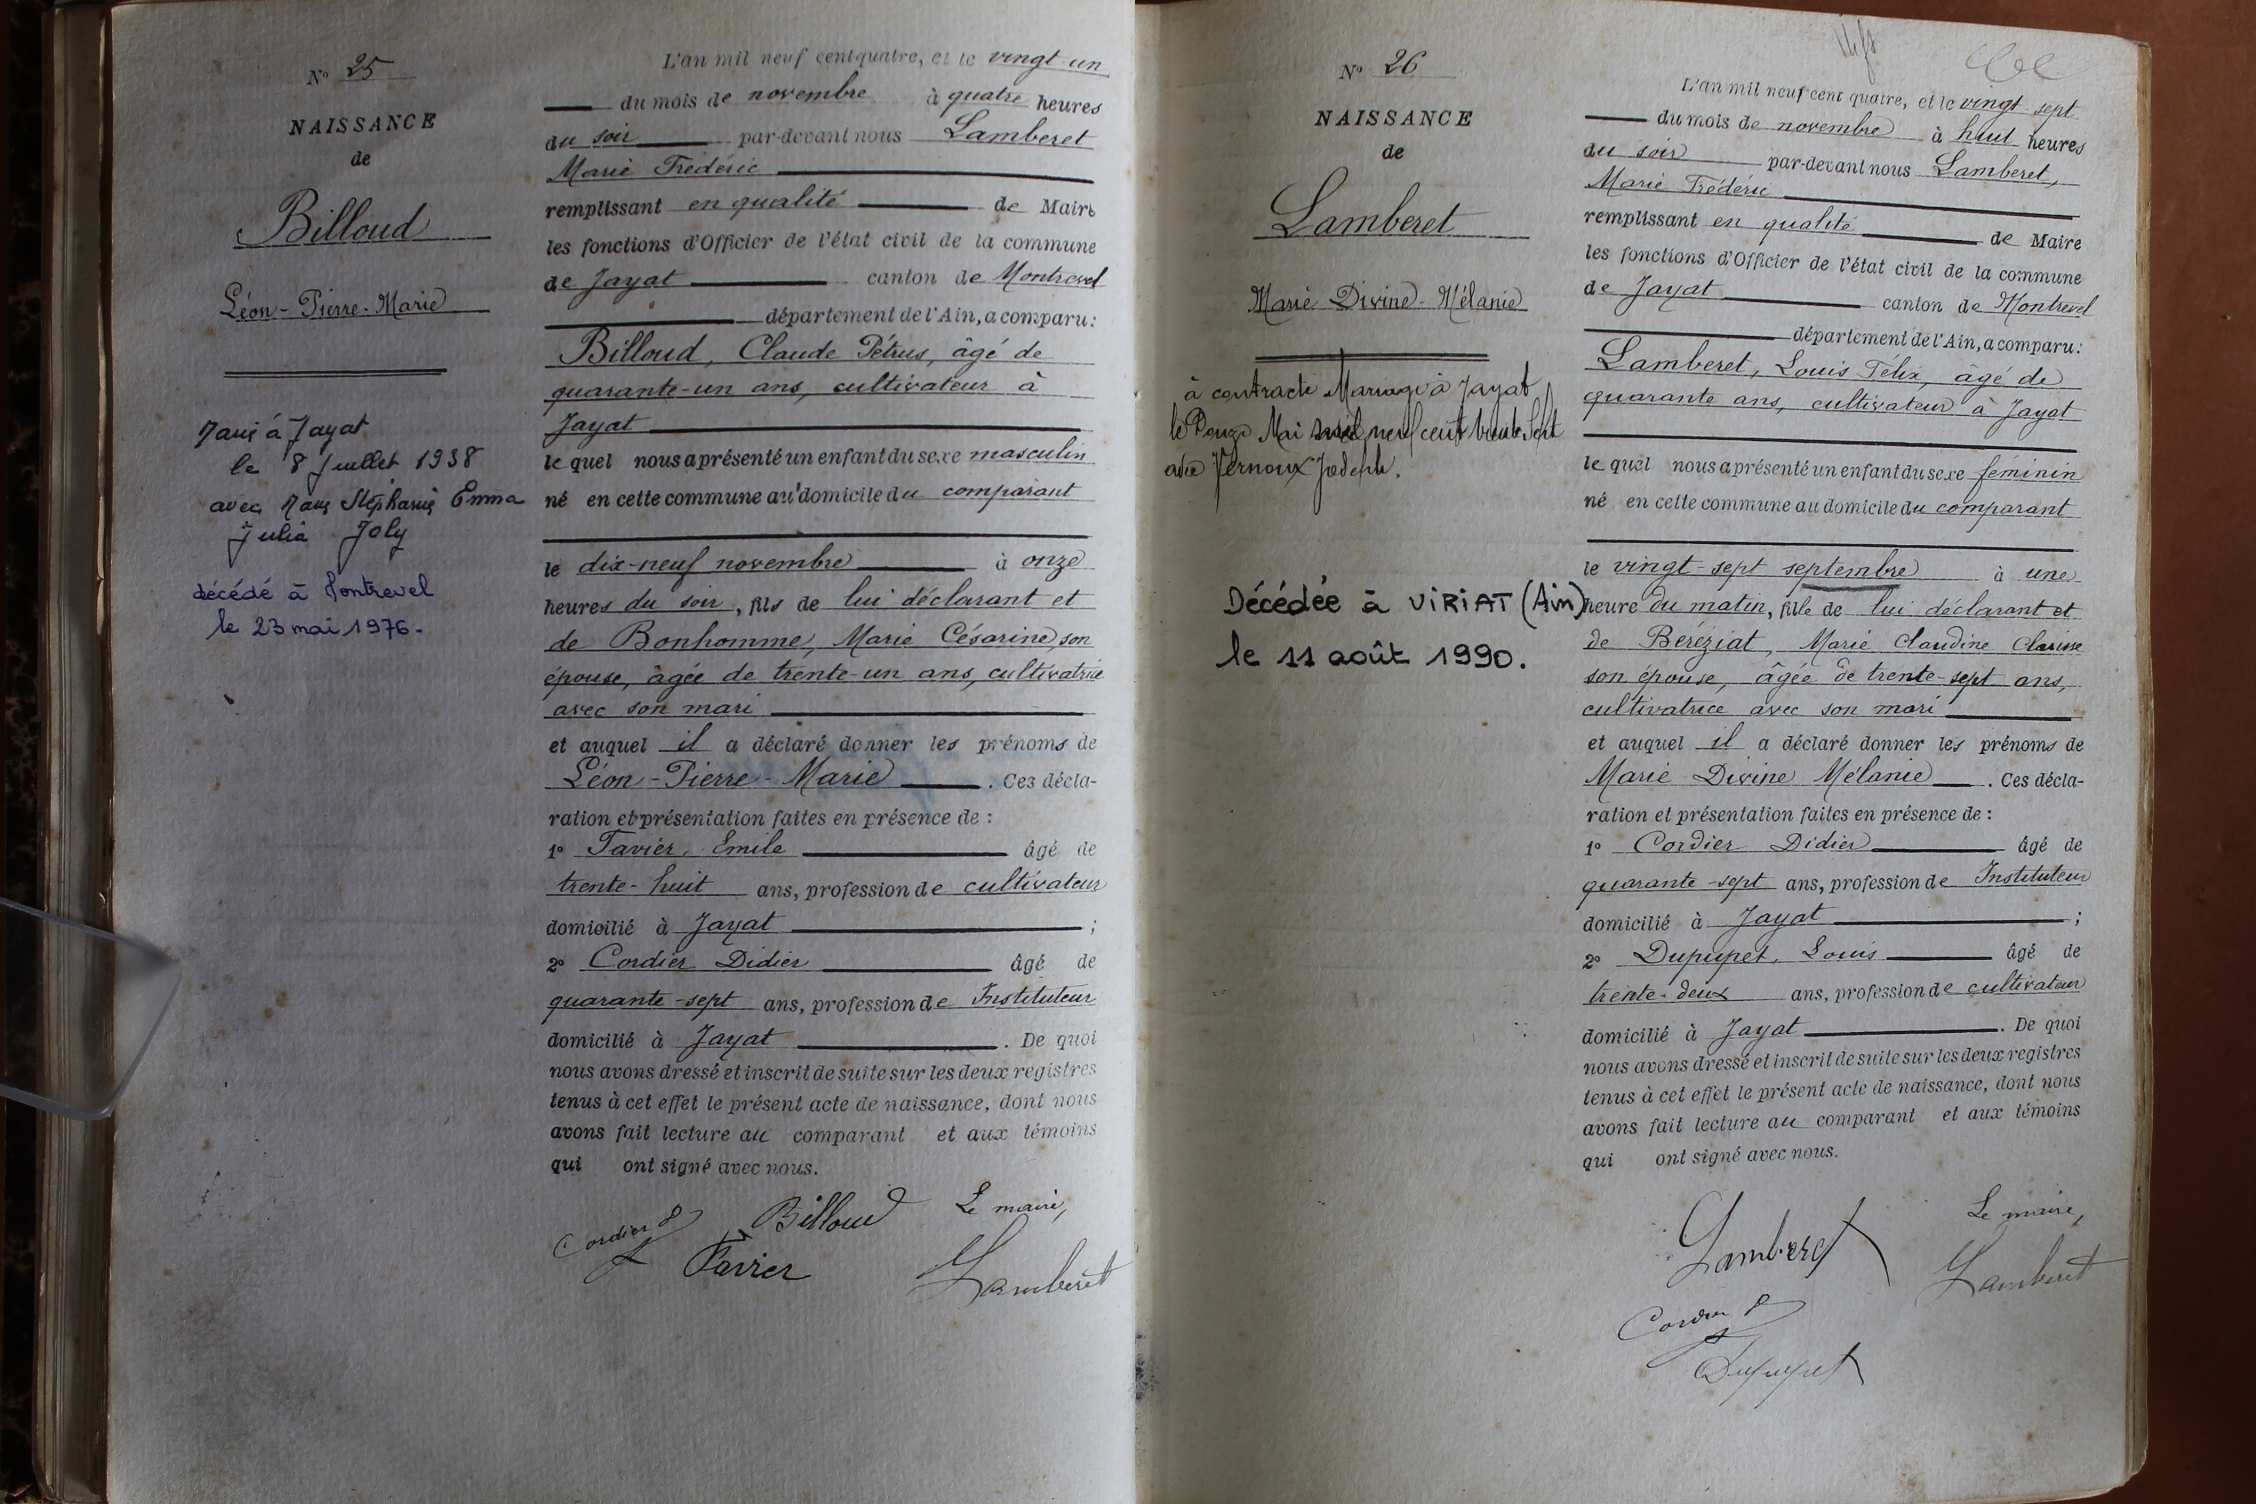 N° 25
NAISSANCE
de
Billoud
Léon-Pierre-Marie
à Jayat
le 8 Juillet 1938
avec Stéphanie Emma
Julia Joly
décédé à Montrevel
le 23 mai 1976.
L'an mil neuf cent quatre, et le vingt un
du mois de novembre à quatre heures
du soir par-devant nous Lamberet
Marie Frédéric
remplissant en qualité de Maire
les fonctions d'Officier de l'état civil de la commune
de Jayat canton de Montrevel
département de l'Ain, a comparu:
Billoud, Claude Pétrus, âgé de
quarante-un ans, cultivateur à
Jayat
le quel nous a présenté un enfant du sexe masculin
né en cette commune au domicile du comparant
le dix-neuf novembre à onze
heures du soir, fils de lui déclarant et
de Bonhomme, Marie Césarine, son
épouse, âgée de trente-un ans, cultivatrice
avec son mari
et auquel il a déclaré donner les prénoms de
Léon-Pierre-Marie. Ces décla-
ration et présentation faites en présence de :
1° Favier, Emile âgé de
trente-huit ans, profession de cultivateur
domicilié à Jayat ;
2° Cordier Didier âgé de
quarante-sept ans, profession de Instituteur
domicilié à Jayat. De quoi
nous avons dressé et inscrit de suite sur les deux registres
tenus à cet effet le présent acte de naissance, dont nous
avons fait lecture au comparant et aux témoins
qui ont signé avec nous.
Cordier D Billoud Le maire,
Favier Lamberet
N° 26
NAISSANCE
de
Lamberet
Marie Divine-Mélanie
à contracté Mariage à Jayat
le Douze Mai mil neuf cent trente Sept
avec Vernoux Joseph.
Décédée à VIRIAT (Ain)
le 11 août 1990.
L'an mil neuf cent quatre, et le vingt-sept
du mois de novembre à huit heures
du soir par-devant nous Lamberet,
Marie Frédéric
remplissant en qualité de Maire
les fonctions d'Officier de l'état civil de la commune
de Jayat canton de Montrevel
département de l'Ain, a comparu:
Lamberet, Louis Félix, âgé de
quarante ans, cultivateur à Jayat
le quel nous a présenté un enfant du sexe féminin
né en cette commune au domicile du comparant
le vingt-sept septembre à une
heure du matin, fille de lui déclarant et
de Beréziat, Marie Claudine Clarisse
son épouse, âgée de trente-sept ans,
cultivatrice avec son mari
et auquel il a déclaré donner les prénoms de
Marie Divine Mélanie. Ces décla-
ration et présentation faites en présence de :
1° Cordier Didier âgé de
quarante-sept ans, profession de Instituteur
domicilié à Jayat ;
2° Dupupet, Louis âgé de
trente-deux ans, profession de cultivateur
domicilié à Jayat. De quoi
nous avons dressé et inscrit de suite sur les deux registres
tenus à cet effet le présent acte de naissance, dont nous
avons fait lecture au comparant et aux témoins
qui ont signé avec nous.
Lamberet Le maire,
Lamberet
Cordier D
Dupupet